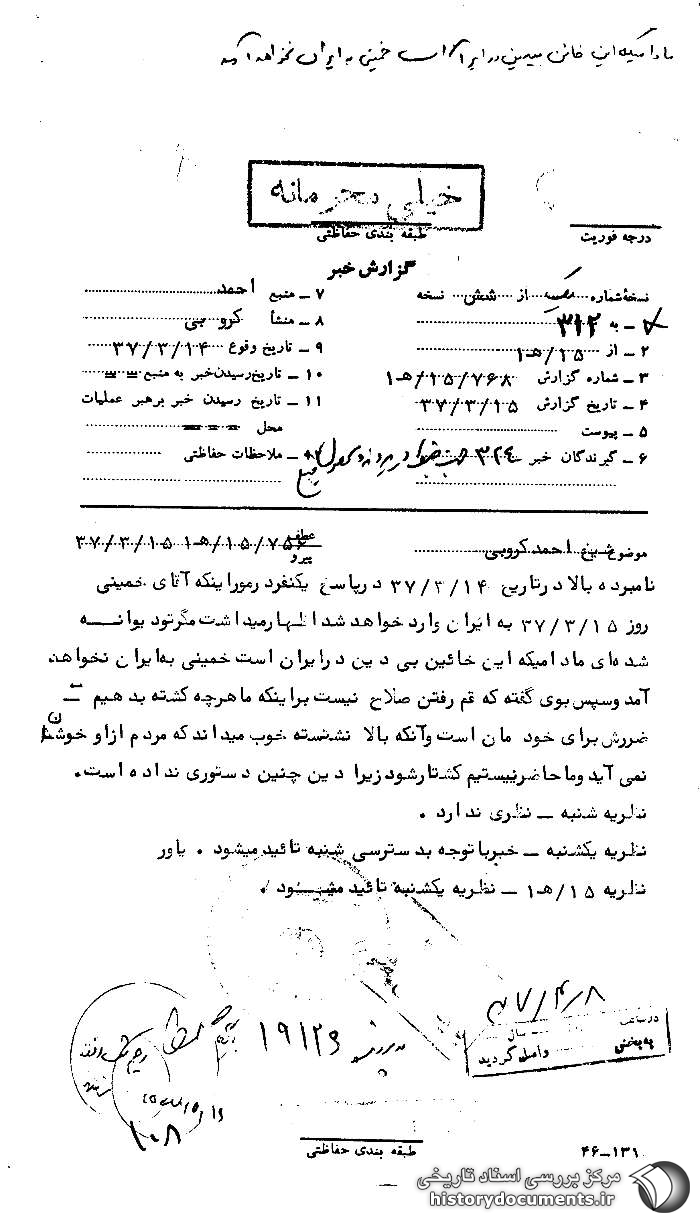 مادامیکه این خائن بیدین در ایران است خمینی به ایران نخواهد آمد
خیلی محرمانه
طبقه بندی حفاظتی
درجه فوریت
گزارش خبر
نسخهٔ شماره یک از شش نسخه
۱ــ به ۳۱۲
۲ــ از ۱۵/هـ۱
۳ــ شماره گزارش ۱۵/۷۶۸/هـ۱
۴ــ تاریخ گزارش ۳۷/۳/۱۵
۵ــ پیوست
۶ــ گیرندگان خبر ۳۲۴
۷ــ منبع احمد
۸ــ منشأ کروبی
۹ــ تاریخ وقوع ۳۷/۳/۱۴
۱۰ــ تاریخ رسیدن خبر به منبع ــ ــ
۱۱ــ تاریخ رسیدن خبر برهبر عملیات
محل ــ ــ ــ
ملاحظات حفاظتی
موضوع شیخ احمد کروبی
عطف
پیرو
۱۵/۷۵۶/هـ۱ ۳۷/۳/۱۵
نامبرده بالا در تاریخ ۳۷/۳/۱۴ در پاسخ یکنفر در مورد اینکه آقای خمینی
روز ۳۷/۳/۱۵ به ایران وارد خواهد شد اظهار میداشت مگر تو دیوانــه
شده‌ای مادامیکه این خائین بی دین در ایران است خمینی به ایران نخواهد
آمد وسپس بوی گفته که قم رفتن صلاح نیست براینکه ما هرچه کشته بدهیم
ضررش برای خود مان است وآنکه بالا نشسته خوب میداند که مردم ازاو خوششان
نمی آید وما حاضر نیستیم کشتار شود زیرا دین چنین دستوری نداده است.
نظریه شنبه ــ نظری ندارد .
نظریه یکشنبه ــ خبر با توجه بدسترسی شنبه تائید میشود . یاور
نظریه ۱۵/هـ۱ ــ نظریه یکشنبه تائید میشود .
۳۷/۴/۸
در ساعت
سال
به بخش
واصل گردید
۱۹۱۲۶
۱۰۸
طبقه بندی حفاظتی
۴۶ــ۱۳۱
مرکز بررسی اسناد تاریخی
historydocuments.ir